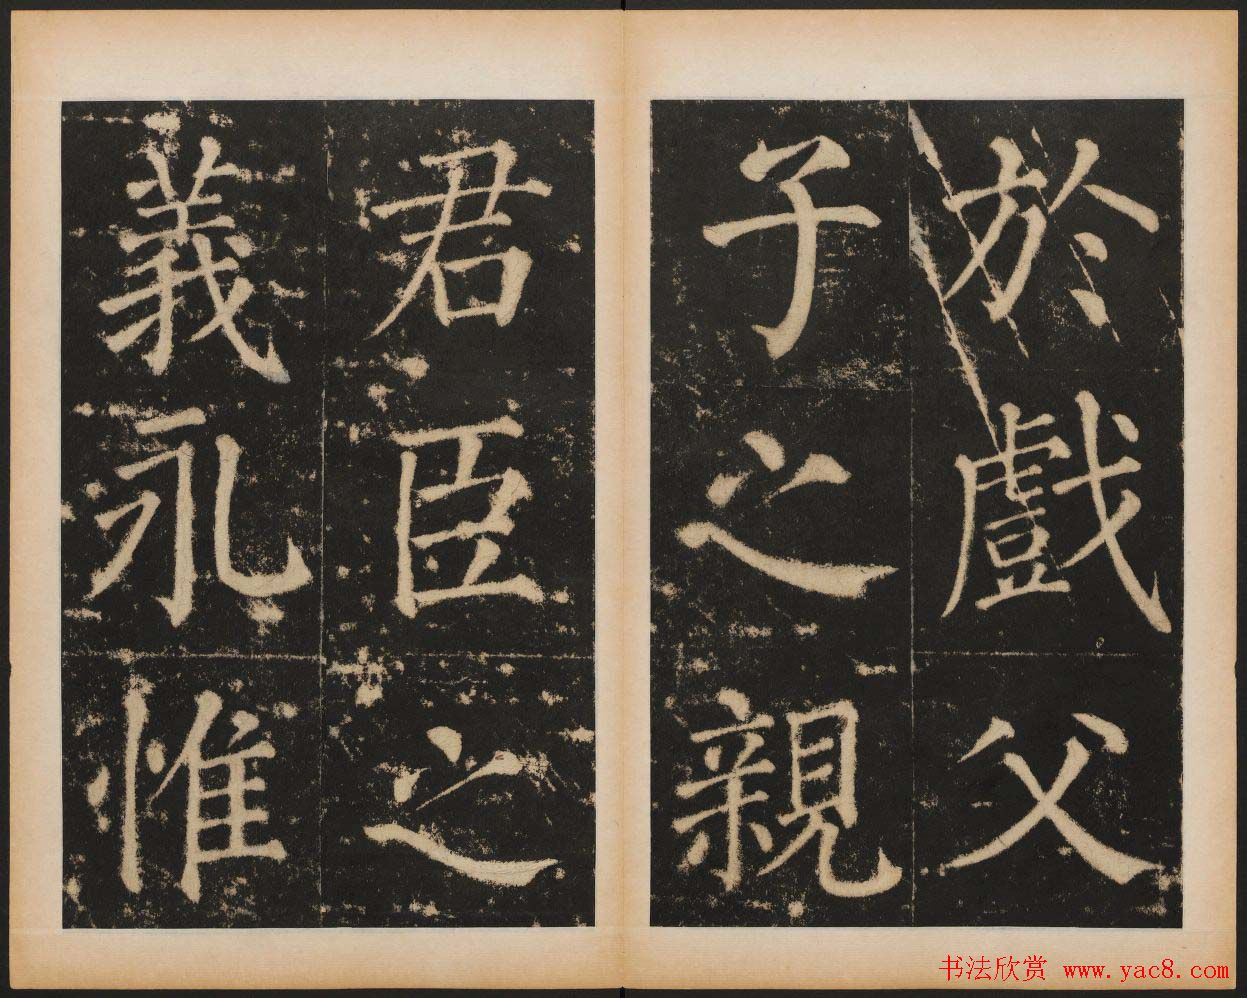 於戲父
子之親
君臣之
義永惟
书法欣赏 www.yac8.com